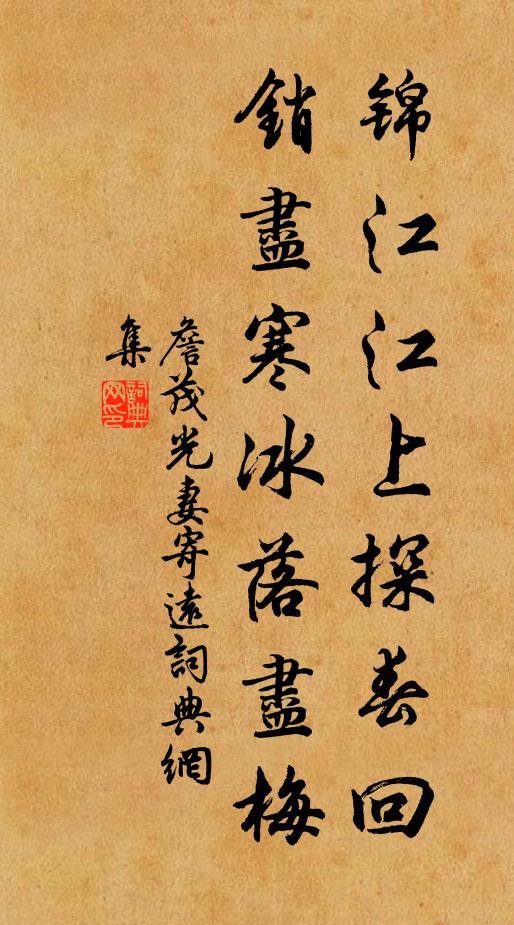 锦江江上探春回
銷盡寒冰落盡梅
詹茂光妻寄遠詞典網
集
詞典網印